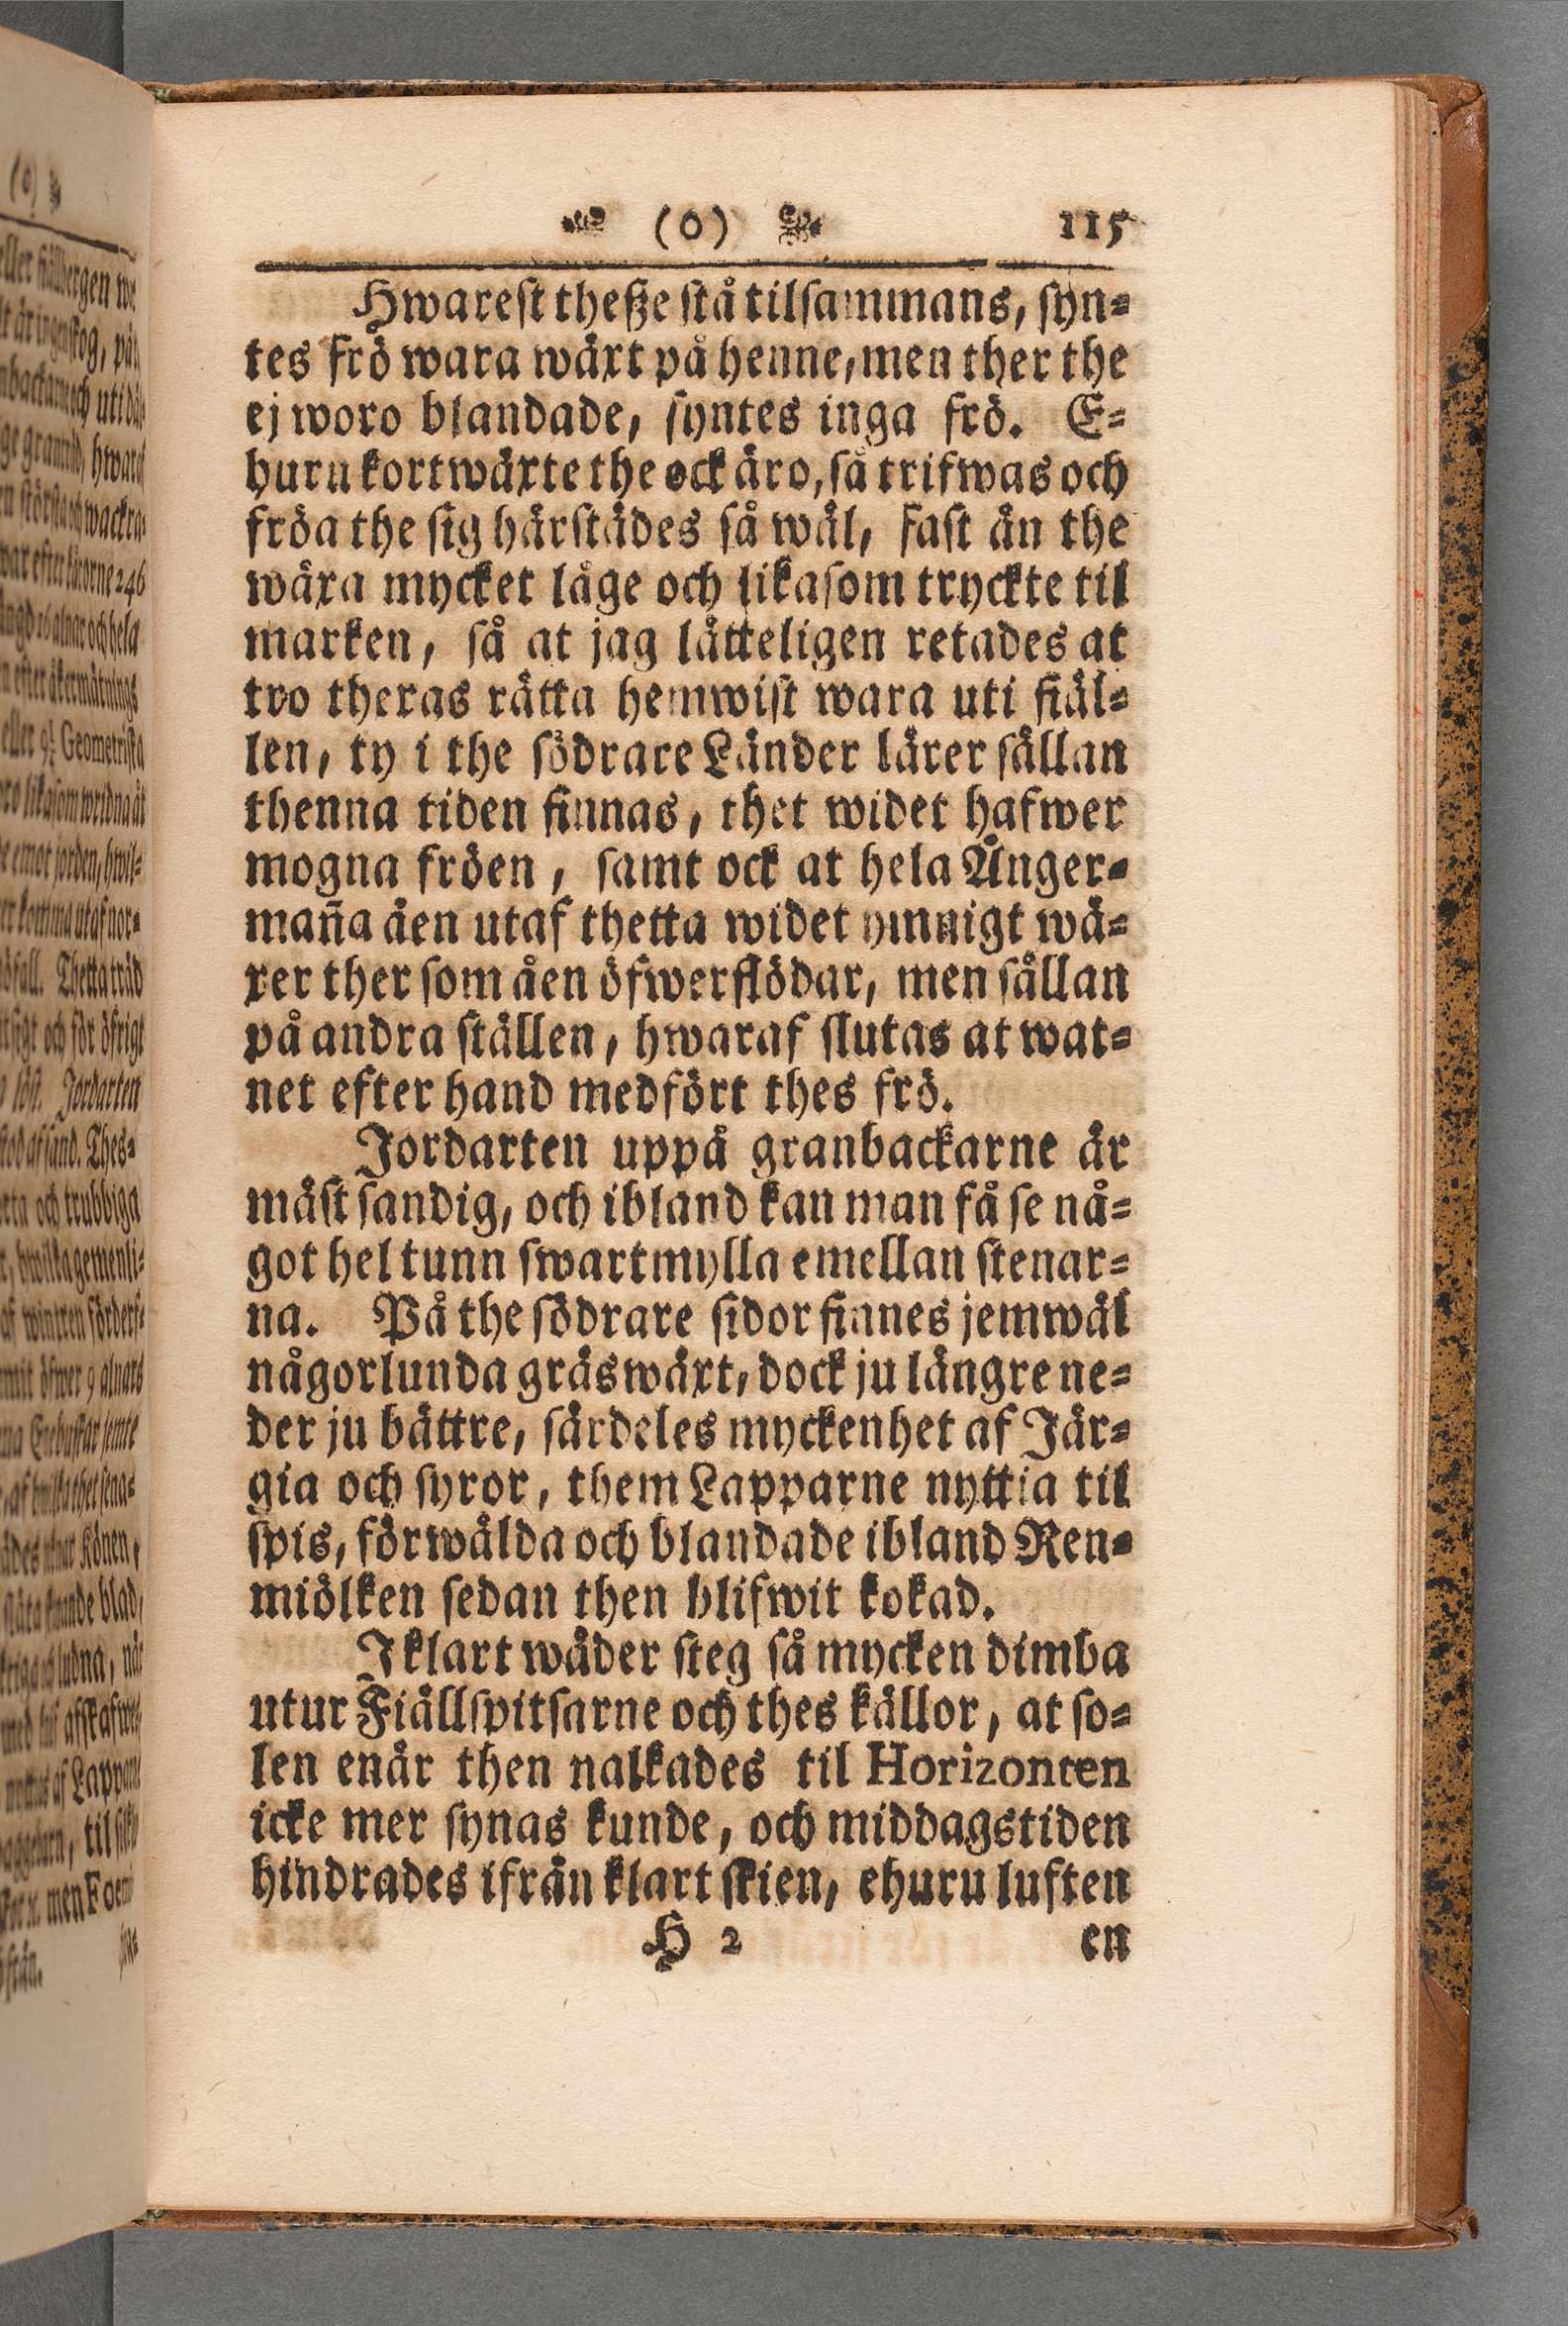 (0) 115
Hwarest theße stå tilsammans, syn-
tes frö wara wäxt på henne, men ther the
ej woro blandade, syntes inga frö. E-
huru kortwäxte the ock äro, så trifwas och
fröa the sig härstädes så wäl, fast än the
wäxa mycket låge och likasom tryckte til
marken, så at jag lätteligen retades at
tro theras rätta hemwist wara uti fiäl-
len, ty i the södrare Länder lärer sällan
thenna tiden finnas, thet widet hafwer
mogna fröen, samt ock at hela Ånger-
maña åen utaf thetta widet ymnigt wä-
xer ther som åen öfwerflödar, men sällan
på andra ställen, hwaraf slutas at wat-
net efter hand medfört thes frö.
Jordarten uppå granbackarne är
mäst sandig, och ibland kan man få se nå-
got hel tunn swartmylla emellan stenar-
na. På the södrare sidor finnes jemwäl
någorlunda gräswäxt, dock ju längre ne-
der ju bättre, särdeles myckenhet af Jär-
gia och syror, them Lapparne nyttia til
spis, förwälda och blandade ibland Ren-
miölken sedan then blifwit kokad.
I klart wäder steg så mycken dimba
utur Fiällspitsarne och thes källor, at so-
len enär then nalkades til Horizonten
icke mer synas kunde, och middagstiden
hindrades ifrån klart skien, ehuru luften
H 2 en